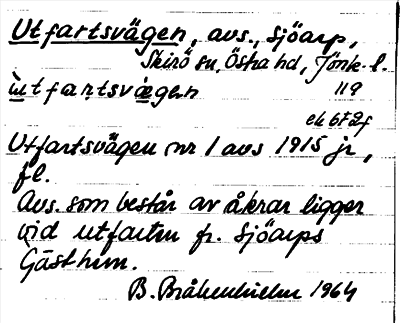 Utfartsvägen, avs., Sjöarp,
Skirö sn, Östra hd, Jönk. l.
ùtfartsvägen 119
ek 67 2f
Utfartsvägen nr 1 avs 1915 jr,
fl.
Avs. som består av åkrar ligger
vid utfarten fr. Sjöarps
Gästhem.
B. Bråkenhielm 1964